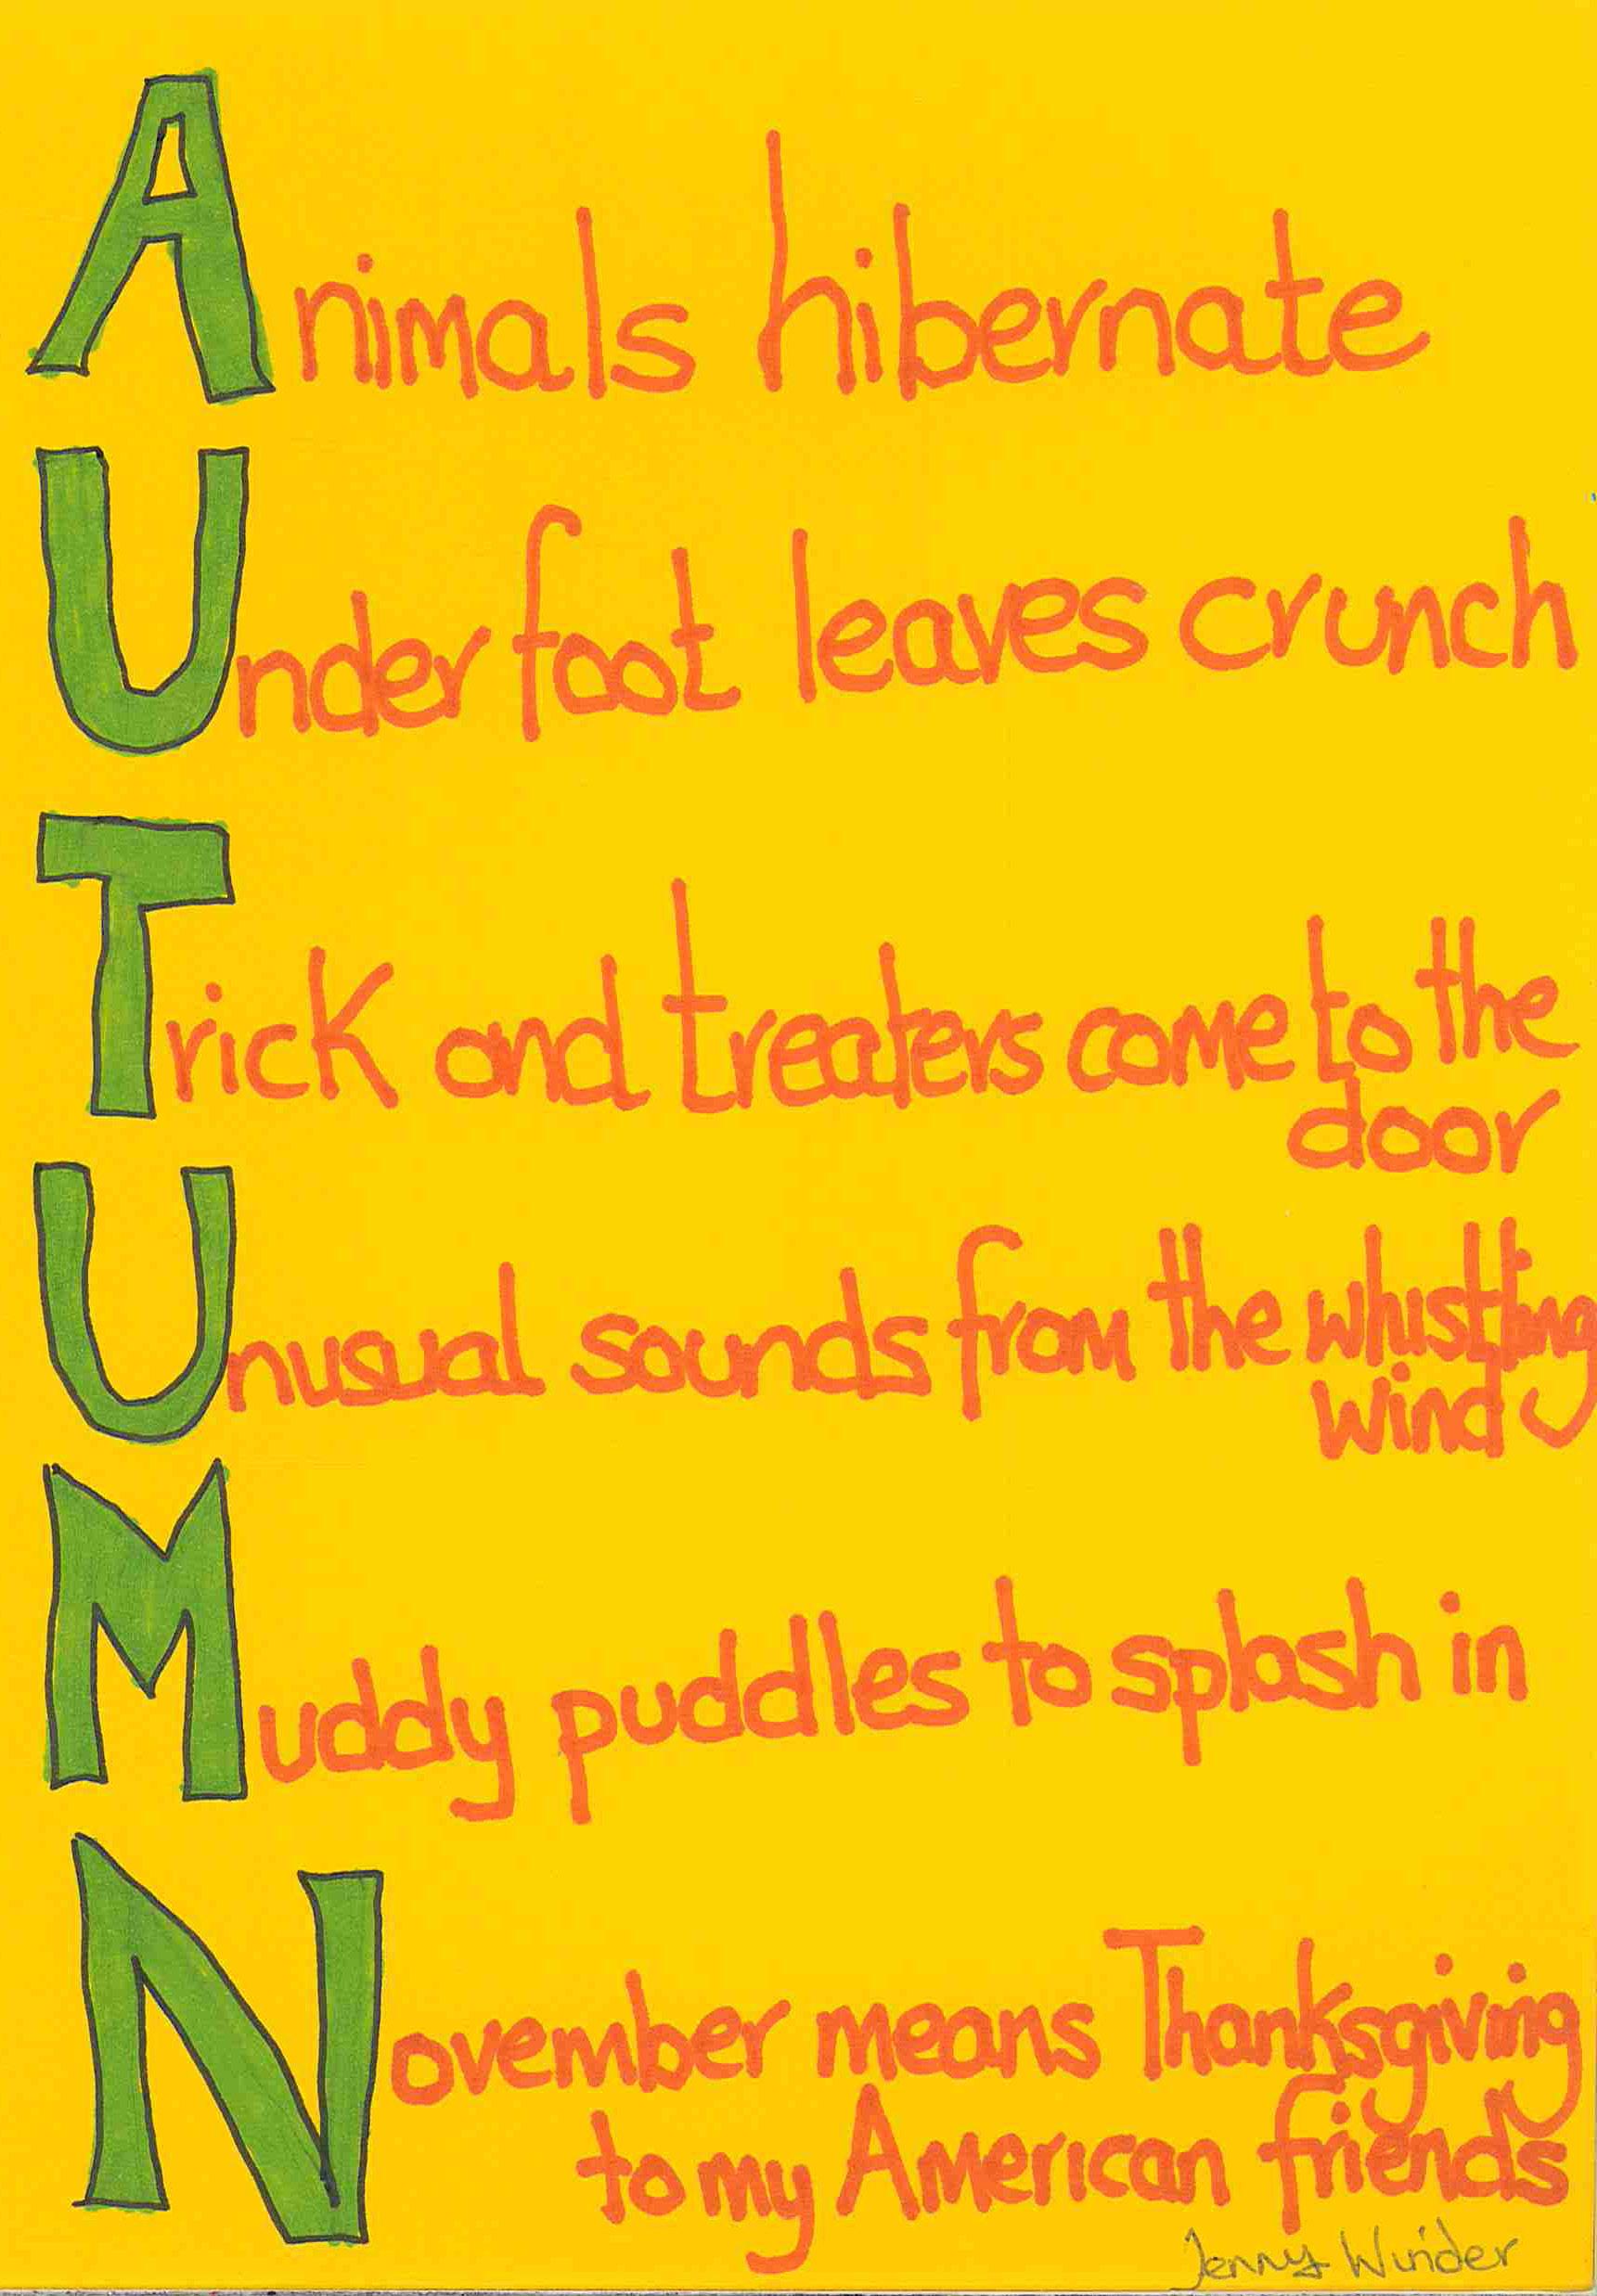 Animals hibernate
Underfoot leaves crunch
Trick and treaters come to the
door
Unusual sounds from the whistling
wind
Muddy puddles to splash in
November means Thanksgiving
to my American friends
Jenny Winder